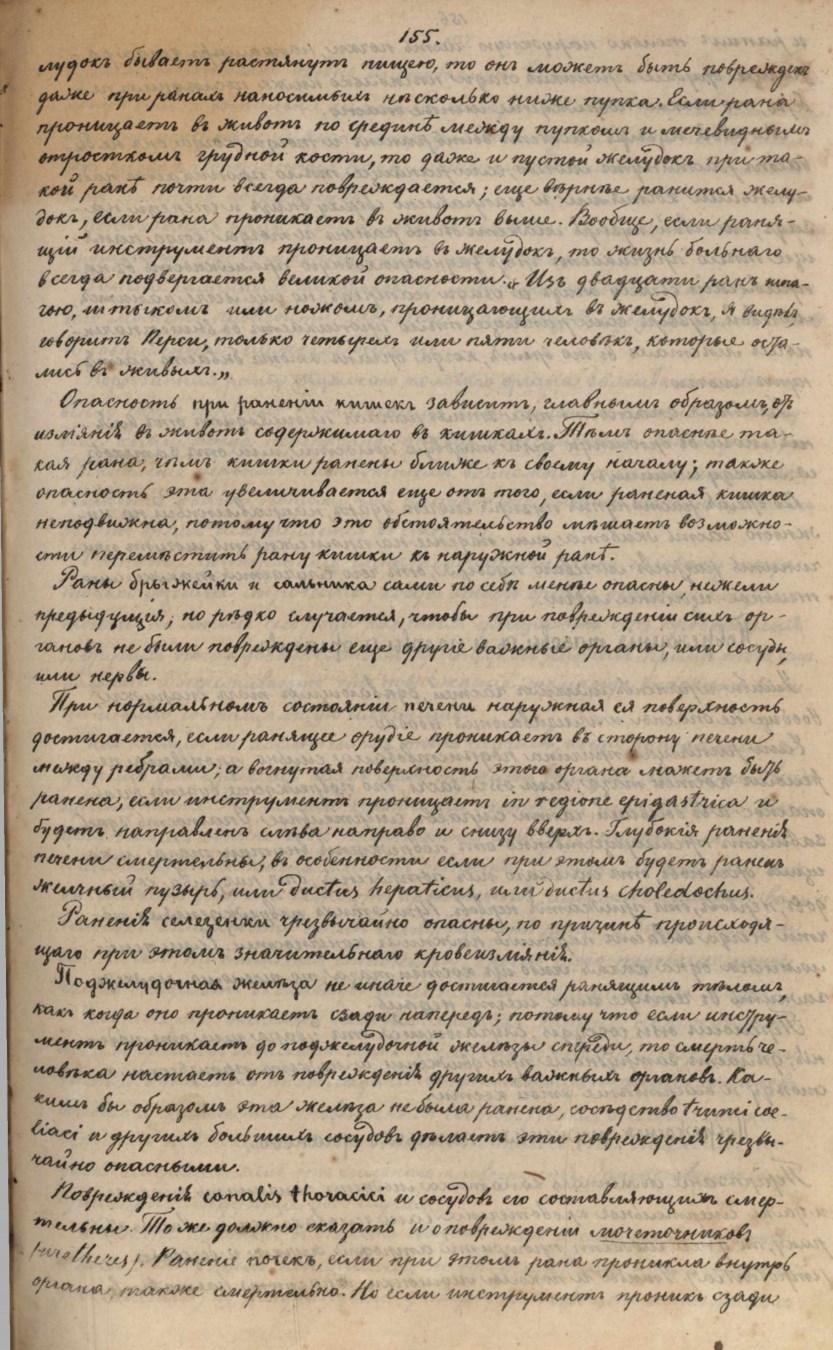 155.
лудокъ бываетъ растянутъ пищею, то онъ можетъ быть поврежденъ
даже при ранахъ наносимыхъ нѣсколько ниже пупка. Если рана
проницаетъ въ животъ по срединѣ между пупкомъ и мечевиднымъ
отросткомъ грудной кости, то даже и пустой желудокъ при та-
кой ранѣ почти всегда повреждается; еще вѣрнѣе ранится желу-
докъ, если рана проникаетъ въ животъ выше. Вообще, если раня-
щій инструментъ проницаетъ въ желудокъ, то жизнь больнаго
всегда подвергается великой опасности. „Изъ двадцати ранъ шпа-
гою, штыкомъ или ножомъ, проницающихъ въ желудокъ, я видѣлъ,
говоритъ Перси, только четырехъ или пяти человѣкъ, которые оста-
лись въ живыхъ.„
Опасность при раненіи кишекъ зависитъ, главнымъ образомъ, отъ
изліянія въ животъ содержимаго въ кишкахъ. Тѣмъ опаснѣе та-
кая рана, чѣмъ кишки ранены ближе къ своему началу; также
опасность эта увеличивается еще отъ того, если раненая кишка
неподвижна, потому что это обстоятельство мѣшаетъ возможно-
сти перемѣстить рану кишки къ наружной ранѣ.
Раны брыжейки и сальника сами по себѣ менѣе опасны, нежели
предыдущія; но рѣдко случается, чтобы при поврежденіи сихъ ор-
гановъ не были повреждены еще другіе важные органы, или сосуды,
или нервы.
При нормальномъ состояніи печени наружная ея поверхность
достигается, если ранящее орудіе проникаетъ въ сторону печени
между ребрами; а вогнутая поверхность этого органа можетъ быть
ранена, если инструментъ проницаетъ in regione epigastrica и
будетъ направленъ слѣва направо и снизу вверхъ. Глубокія раненія
печени смертельны, въ особенности если при этомъ будетъ раненъ
желчный пузырь, или ductus hepaticus, или ductus choledochus.
Раненія селезенки чрезвычайно опасны, по причинѣ происходя-
щаго при этомъ значительнаго кровеизліянія.
Поджелудочная желѣза не иначе достигается ранящимъ тѣломъ,
какъ когда оно проникаетъ сзади напередъ; потому что если инстру-
ментъ проникаетъ до поджелудочной желѣзы спереди, то смерть че-
ловѣка настаетъ отъ поврежденія другихъ важныхъ органовъ. Ка-
кимъ бы образомъ эта желѣза не была ранена, сосѣдство trunci coe-
liaci и другихъ большихъ сосудовъ дѣлаетъ эти поврежденія чрезвы-
чайно опасными.
Поврежденія canalis thoracici и сосудовъ его составляющихъ смер-
тельны. То же должно сказать и о поврежденіи мочеточниковъ
(urotheres). Раненіе почекъ, если при этомъ рана проникла внутрь
органа, также смертельно. Но если инструментъ проникъ сзади